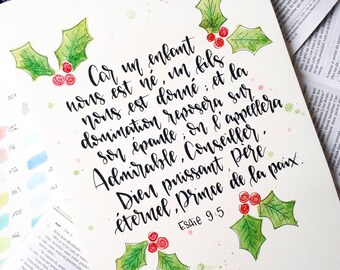 Car un enfant
nous est né, un fils
nous est donné; et la
domination reposera sur
son épaule; on l'appellera
Admirable, Conseiller,
Dieu puissant, Père
éternel, Prince de la paix.
Esaïe 9:5